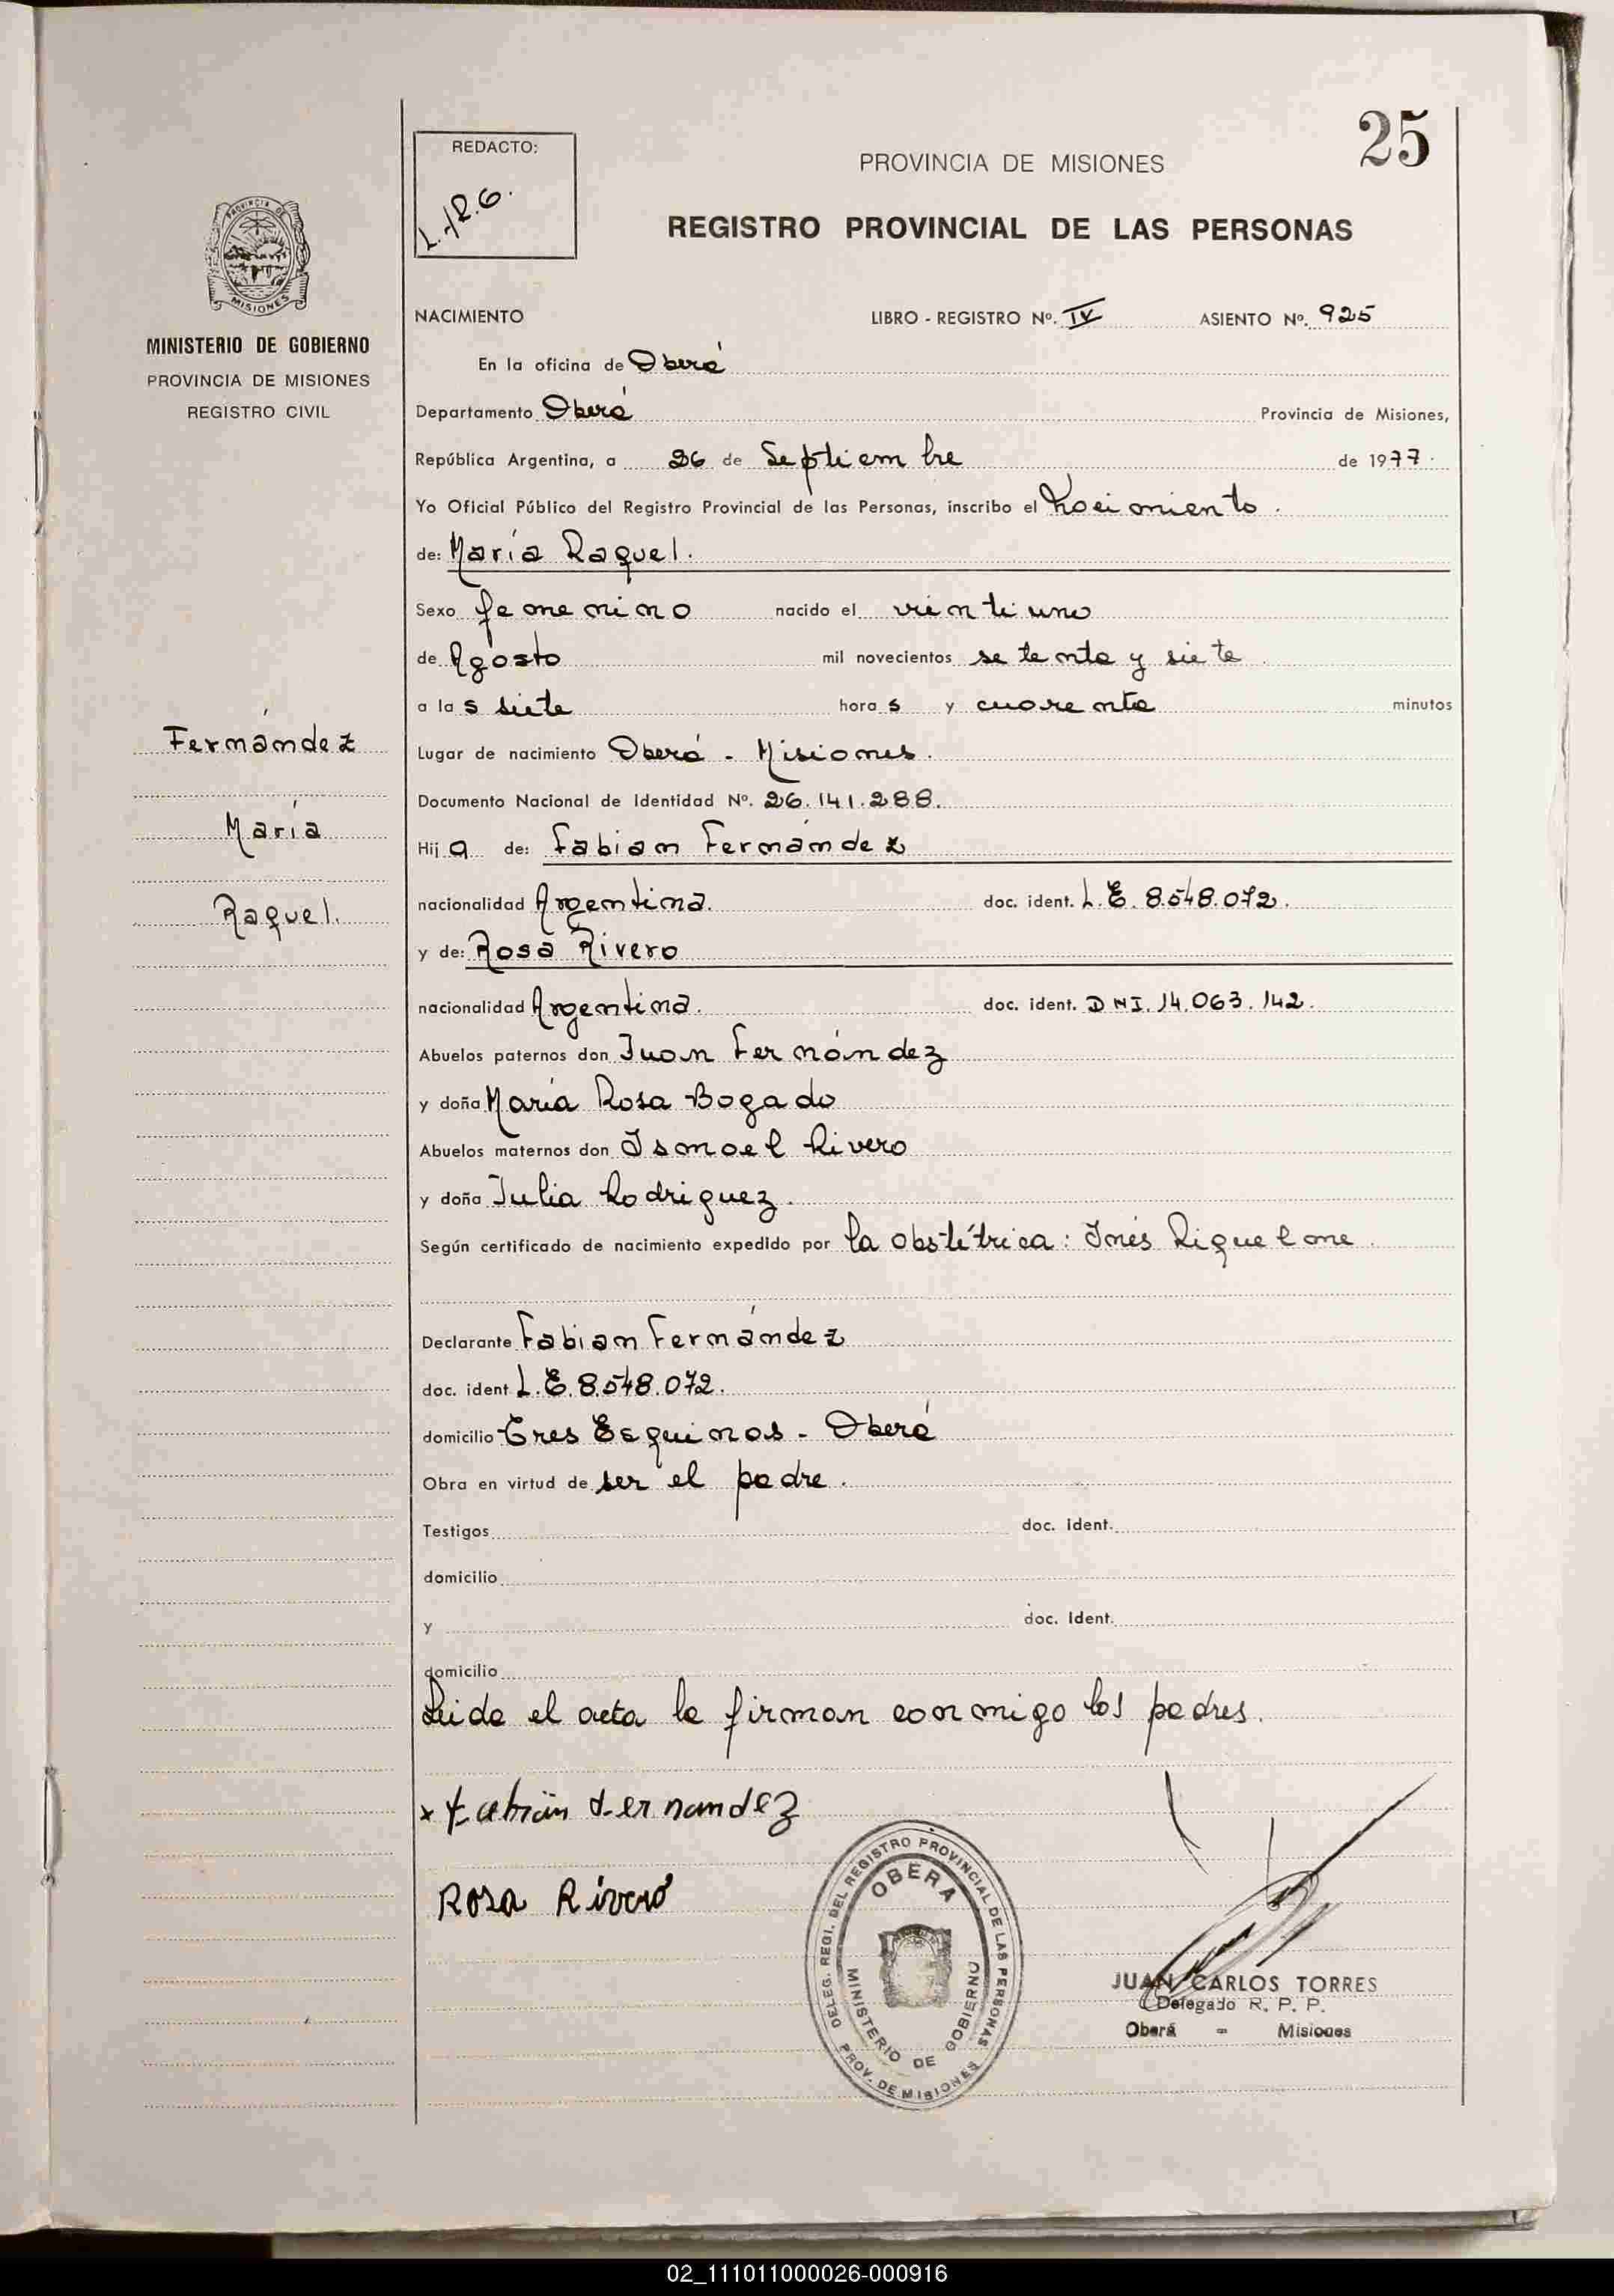 25
REDACTO:
L./R.G.
PROVINCIA DE MISIONES
REGISTRO PROVINCIAL DE LAS PERSONAS
PROVINCIA DE
MISIONES
MINISTERIO DE GOBIERNO
PROVINCIA DE MISIONES
REGISTRO CIVIL
NACIMIENTO LIBRO - REGISTRO Nº. IV ASIENTO Nº. 925
En la oficina de Oberá
Departamento Oberá Provincia de Misiones,
República Argentina, a 26 de Septiembre de 1977.
Yo Oficial Público del Registro Provincial de las Personas, inscribo el Nacimiento.
de: María Raquel.
Sexo femenino nacido el veintiuno
de Agosto mil novecientos setenta y siete
a las siete horas y cuarenta minutos
Lugar de nacimiento Oberá - Misiones.
Documento Nacional de Identidad Nº. 26.141.288.
Hija de: Fabian Fernández
nacionalidad Argentina. doc. ident. L.E. 8.548.072.
y de: Rosa Rivero
nacionalidad Argentina. doc. ident. DNI. 14.063.142.
Abuelos paternos don Juan Fernández
y doña María Rosa Bogado
Abuelos maternos don Ismael Rivero
y doña Julia Rodriguez.
Según certificado de nacimiento expedido por la obstétrica: Inés Riquelme.
Declarante Fabian Fernández
doc. ident L.E. 8.548.072.
domicilio Tres Esquinas - Oberá
Obra en virtud de ser el padre.
Testigos doc. ident.
domicilio
y doc. ident.
domicilio
Leida el acta la firman conmigo los padres.
Fernández
María
Raquel.
x Fabián Fernandez
Rosa Rivero
DELEG. REGI. DEL REGISTRO PROVINCIAL DE LAS PERSONAS
OBERA
MINISTERIO DE GOBIERNO
PROV. DE MISIONES
JUAN CARLOS TORRES
Delegado R. P. P.
Oberá - Misiones
02_111011000026-000916